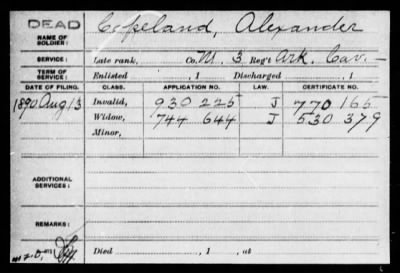 DEAD
NAME OF SOLDIER: Copeland, Alexander
SERVICE: Late rank, Co. M. 3 Reg't Ark. Cav.
TERM OF SERVICE: Enlisted , 1 Discharged , 1
DATE OF FILING. CLASS. APPLICATION NO. LAW. CERTIFICATE NO.
1890 Aug 13 Invalid, 930 225 J 770 165
Widow, 744 644 J 530 379
Minor,
ADDITIONAL SERVICES:
REMARKS:
Died , 1 , at